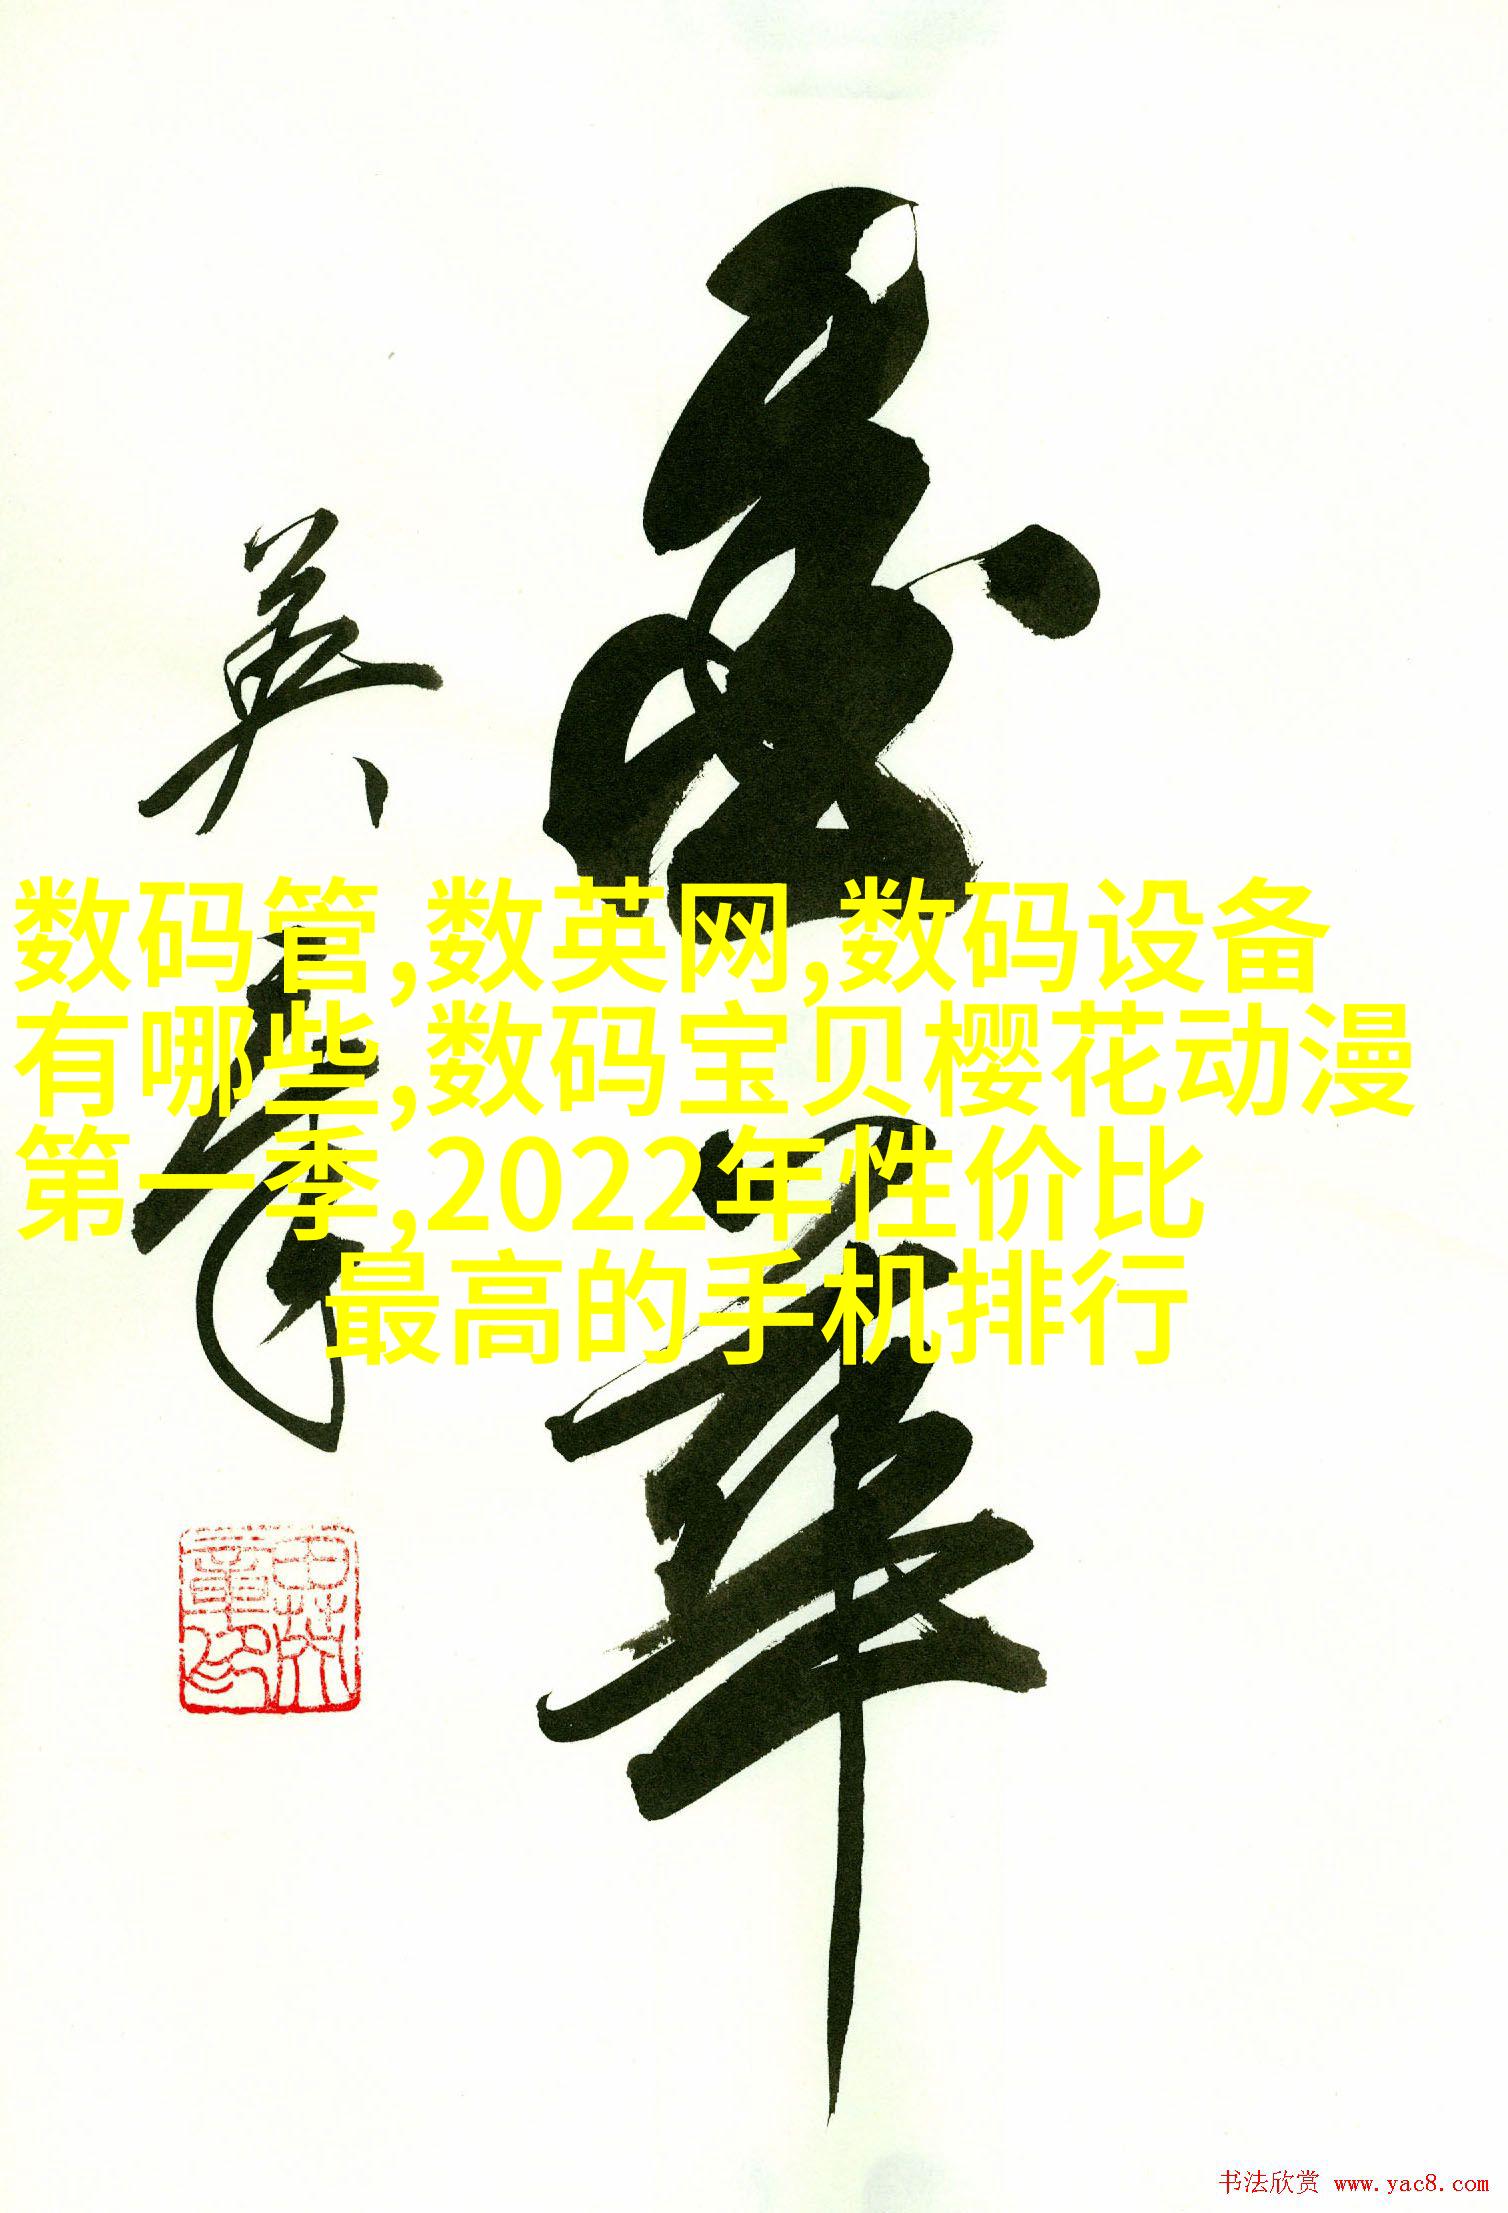 英
章
数码管,数英网,数码设备
有哪些,数码宝贝樱花动漫
第一季,2022年性价比
最高的手机排行
书法欣赏 www.yac8.com